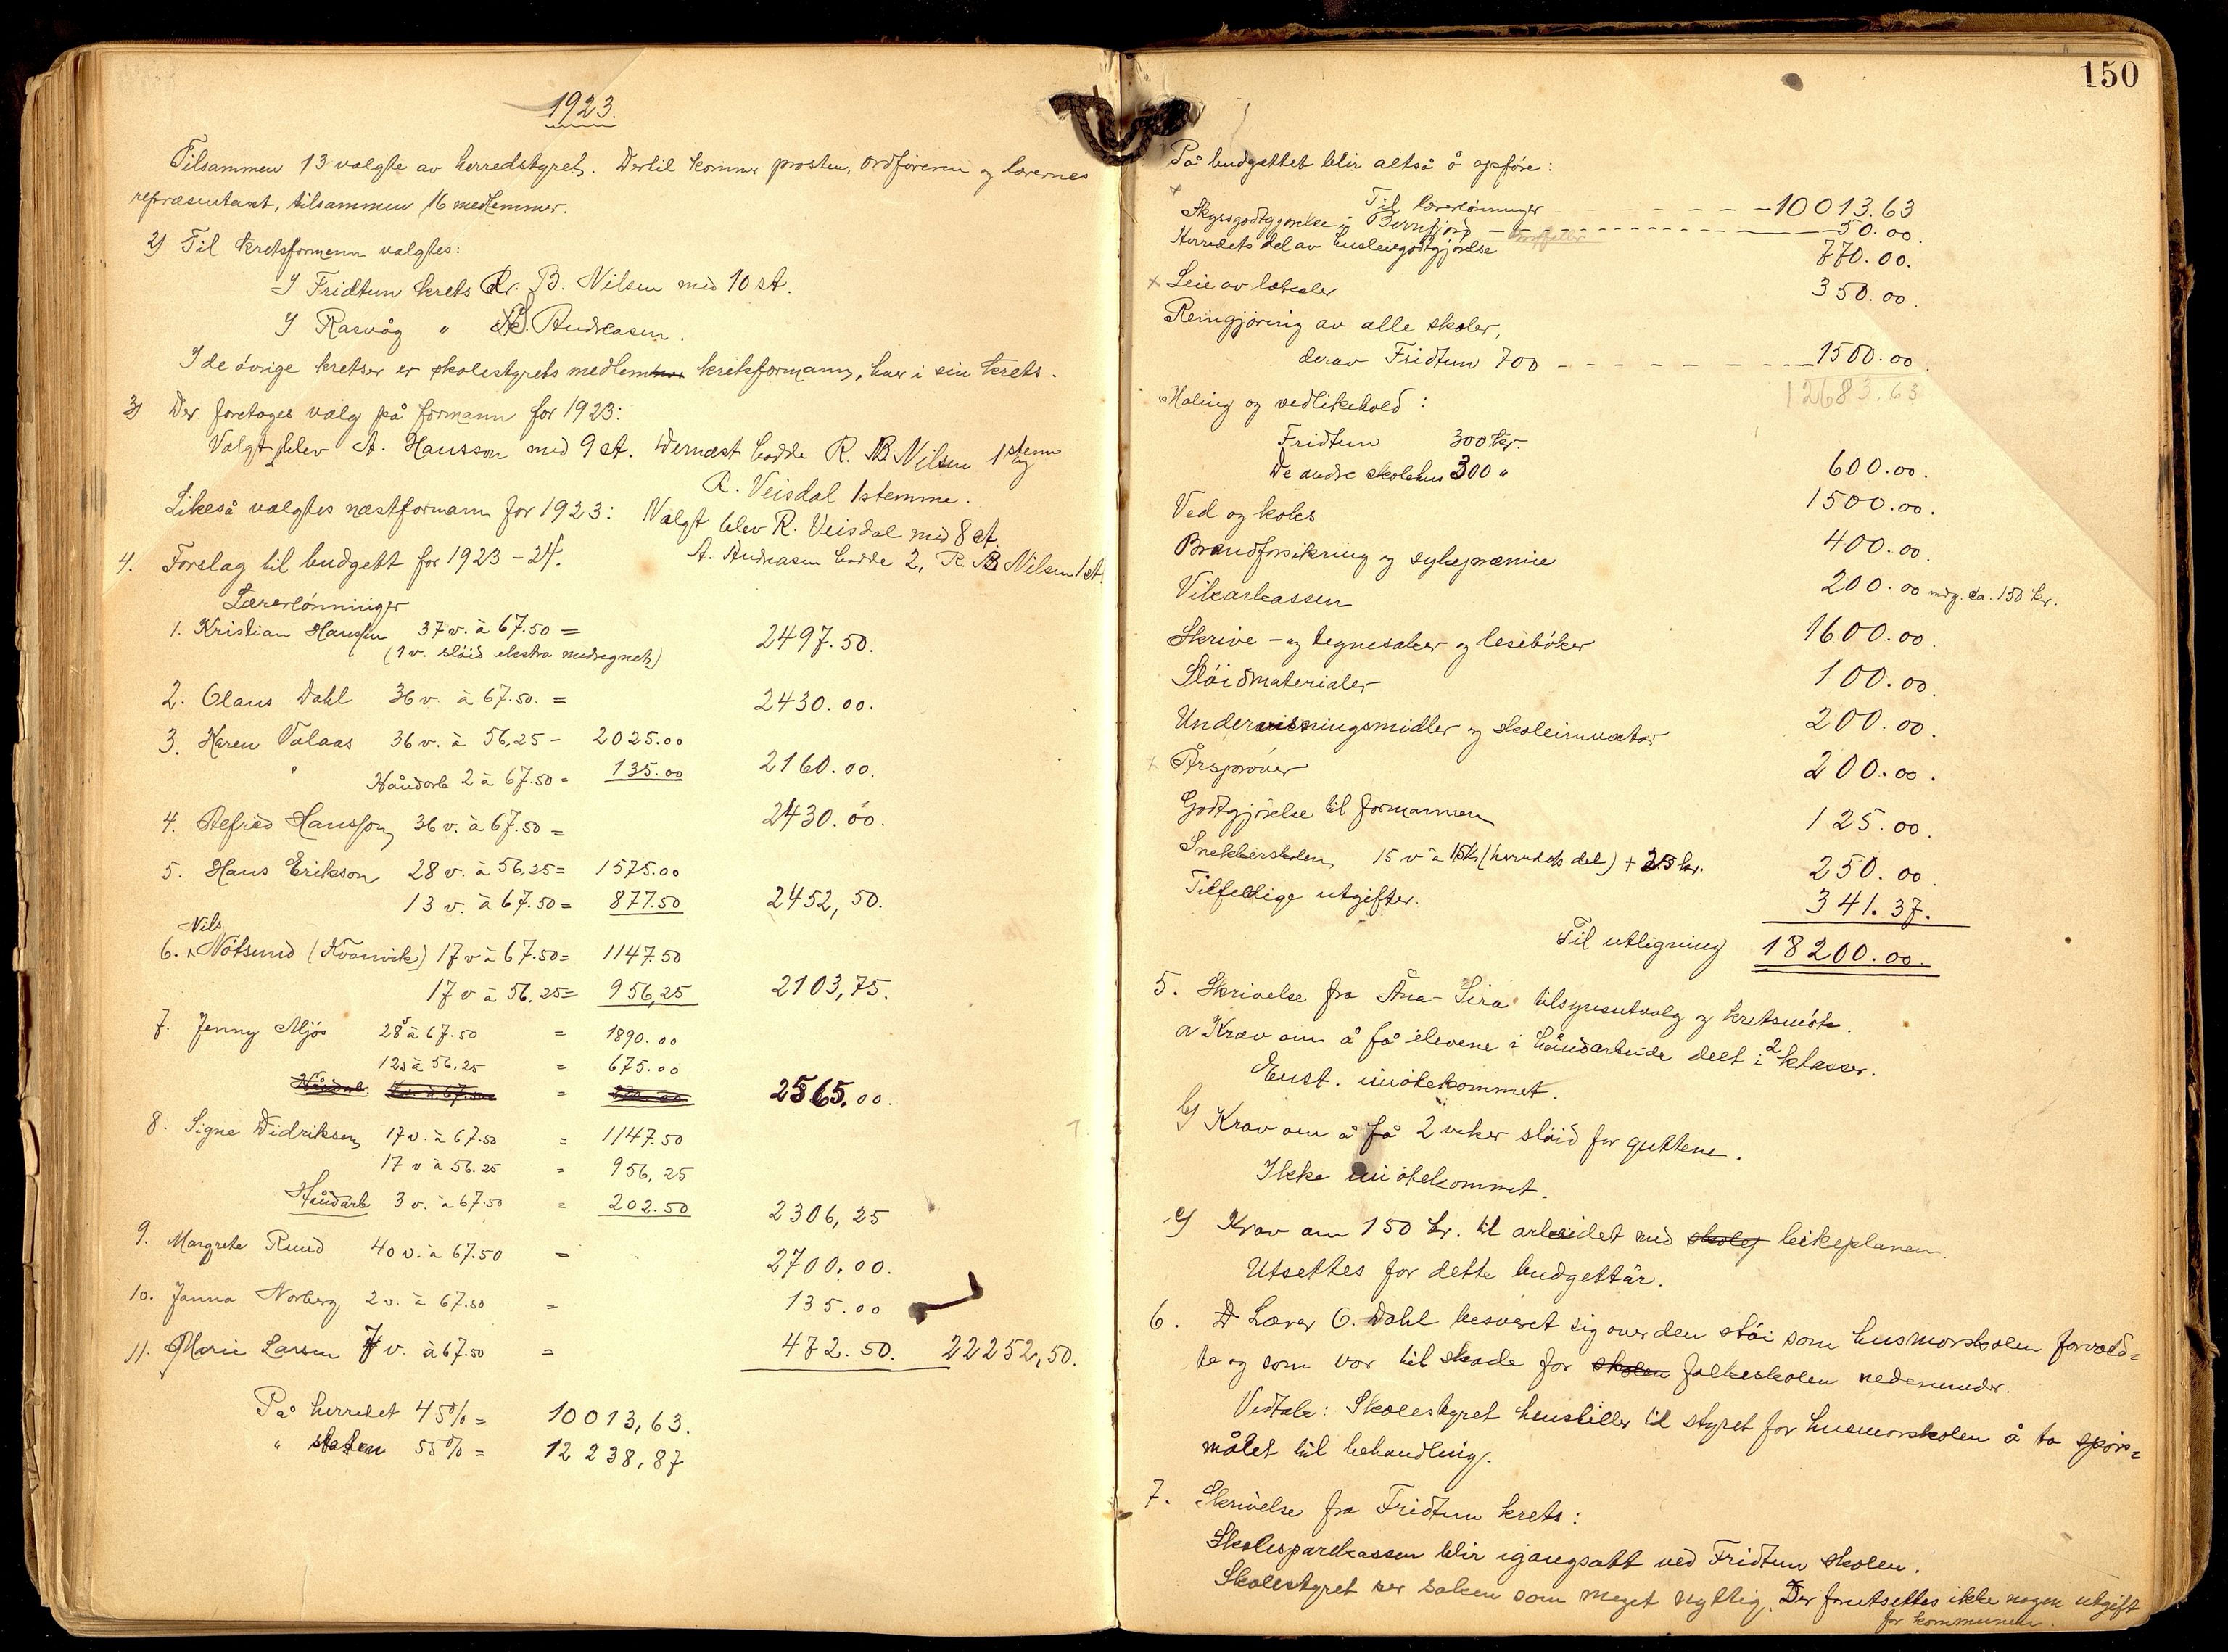 1923.
Tilsammen 13 valgte av herredstyret. Dertil kommer prosten, ordføreren og lærernes
repræsentant, tilsammen 16 medlemmer.
2) Til kretsformenn valgtes:
I Fridtun krets R. B. Nilsen med 10 st.
I Rasvåg " A. Andreasen.
I de øvrige kretser er skolestyrets medlem kretsformann, hver i sin krets.
3) Der foretages valg på formann for 1923:
Valgt blev A. Hansson med 9 st. Dernæst hadde R. B. Nilsen 1 stemme og
R. Veisdal 1 stemme.
Likeså valgtes næstformann for 1923: Valgt blev R. Veisdal med 8 st.
A. Andreasen hadde 2, R. B. Nilsen 1 st.
4. Forslag til budgett for 1923-24.
Lærerlønninger
1. Kristian Hanssen 37 v. à 67.50 = 2497.50.
(1 v. sløid ekstra medregnet)
2. Olaus Dahl 36 v. à 67.50. = 2430.00.
3. Karen Valaas 36 v. à 56,25 - 2025.00
Håndarb 2 à 67.50 = 135.00 2160.00.
4. Alfred Hansson 36 v. à 67.50 = 2430.00.
5. Hans Erikson 28 v. à 56,25 = 1575.00
13 v. à 67.50 = 877.50 2452,50.
6. Nils Nøtsund (Kvanvik) 17 v à 67.50 = 1147.50
17 v à 56.25 = 956,25 2103,75.
7. Jenny Mjøs 28 à 67.50 = 1890.00
12 à 56.25 = 675.00
Håndarb. 2 v. à 67.50 = 2565.00.
8. Signe Didriksen 17 v. à 67.50 = 1147.50
17 v à 56.25 = 956,25
Håndarb 3 v. à 67.50 = 202.50 2306,25
9. Margrete Ruud 40 v. à 67.50 = 2700.00.
10. Janna Norberg 2 v. à 67.50 = 135.00
11. Marie Larsen 7 v. à 67.50 = 472.50. 22252,50.
På herredet 45% = 10013,63.
" staten 55% = 12238,87
150
På budgettet blir altså å opføre:
Til lærerlønninger 10013.63
Skyssgodtgjørelse i 50.00.
Herredets del av husleiegodtgjørelse 770.00.
× Leie av lokaler 350.00.
Reingjøring av alle skoler,
derav Fridtun 700 1500.00
12683.63
Maling og vedlikehold:
Fridtun 300 kr.
De andre skolehus 300 " 600.00.
Ved og koks 1500.00.
Brandforsikring og sykepræmie 400.00.
Vikarkassen 200.00 mdg. ca. 150 kr.
Skrive- og tegnesaker og lesebøker 1600.00.
Sløidmaterialer 100.00.
Undervisningsmidler og skoleinventar 200.00.
× Årsprøver 200.00.
Godtgjørelse til formannen 125.00.
Snekkerskolen 15 v à 15 kr (herredets del) + 25 kr. 250.00.
Tilfeldige utgifter. 341.37.
Til utligning 18200.00.
5. Skrivelse fra Åna-Sira tilsynsutvalg og kretsmøte.
a Krav om å få elevene i håndarbeide delt i 2 klasser.
Enst. imøtekommet.
b) Krav om å få 2 veker sløid for guttene.
Ikke imøtekommet.
c) Krav om 150 kr. til arbeidet med skolej leikeplanen.
Utsettes for dette budgettår.
6. D Lærer O. Dahl besværet sig over den støi som husmorskolen forvold=
te og som var til skade for skolen folkeskolen nedenunder.
Vedtak: Skolestyret henstiller til styret for husmorskolen å ta spørs=
målet til behandling.
7. Skrivelse fra Fridtun krets:
Skolesparekassen blir igangsatt ved Fridtun skolen.
Skolestyret ser saken som meget nyttig. Der forutsettes ikke nogen utgift
for kommunen.